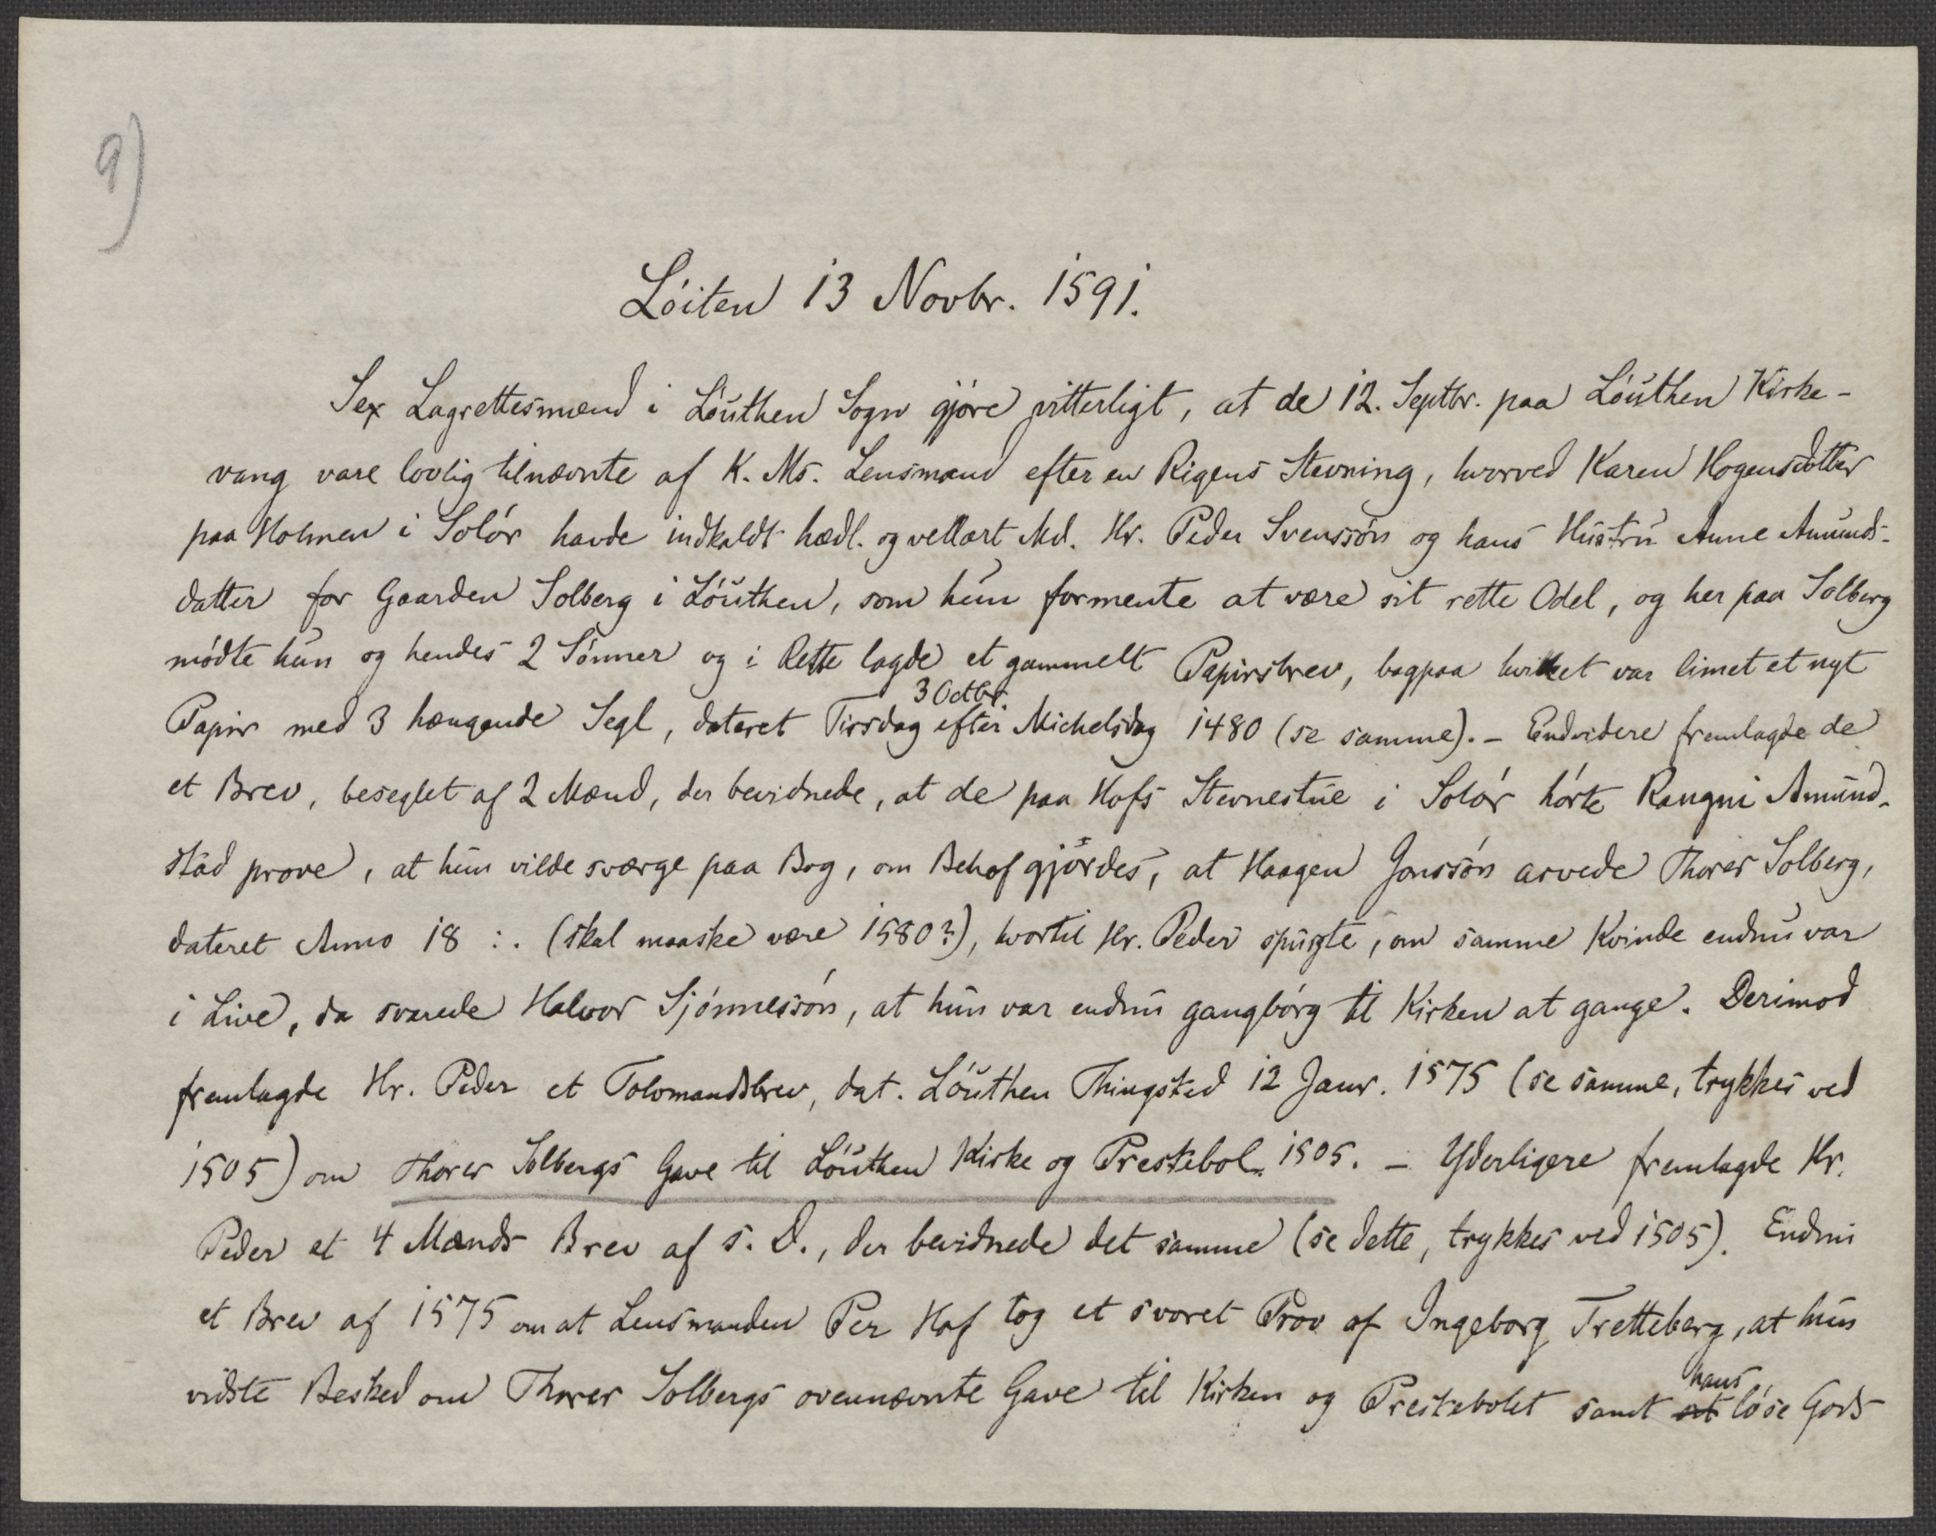 9)
Löiten 13 Novbr. 1591.
Sex Lagrettesmænd i Löuthen Sogn gjöre vitterligt, at de 12. Septbr. paa Löuthen Kirke-
vang vare lovlig tilnævnte af K. Ms. Lensmand efter en Rigens Stevning, hvorved Karen Hogensdotter
paa Holmen i Solör havde indkaldt hædl. og vellært Md. Hr. Peder Svenssön og hans Hustru Anne Amunds-
datter for Gaarden Solberg i Löuthen, som hun formente at være sit rette Odel, og her paa Solberg
mödte hun og hendes 2 Sönner og i Rette lagde et gammelt Papirsbrev, bagpaa hvilket var limet et nyt
3 Octbr.
Papir med 3 hængende Segl, dateret Tirsdag efter Michelsdag 1480 (se samme). – Endvidere fremlagde de
et Brev, beseglet af 2 Mænd, der bevidnede, at de paa Hofs Stevnestue i Solör hörte Rangni Amund-
stad prove, at hun vilde sværge paa Bog, om Behof gjördes, at Haagen Jonssön arvede Thorer Solberg,
dateret Anno 18 :. (skal maaske være 1580?), hvortil Hr. Peder spurgte, om samme Kvinde endnu var
i Live, da svarede Halvor Sjönnessön, at hun var endnu gangbörg til Kirken at gange. Derimod
fremlagde Hr. Peder et Tolvmandsbrev, dat. Löuthen Thingsted 12 Janr. 1575 (se samme, trykkes ved
1505) om Thorer Solbergs Gave til Löuthen Kirke og Prestebol 1505. – Yderligere fremlagde Hr.
Peder et 4 Mænds Brev af s. D., der bevidnede det samme (se dette, trykkes ved 1505). Endnu
et Brev af 1575 om at Lensmanden Per Hof tog et svoret Prov af Ingeborg Tretteberg, at hun
hans
vidste Besked om Thorer Solbergs ovennævnte Gave til Kirken og Prestebolet samt sit löse Gods